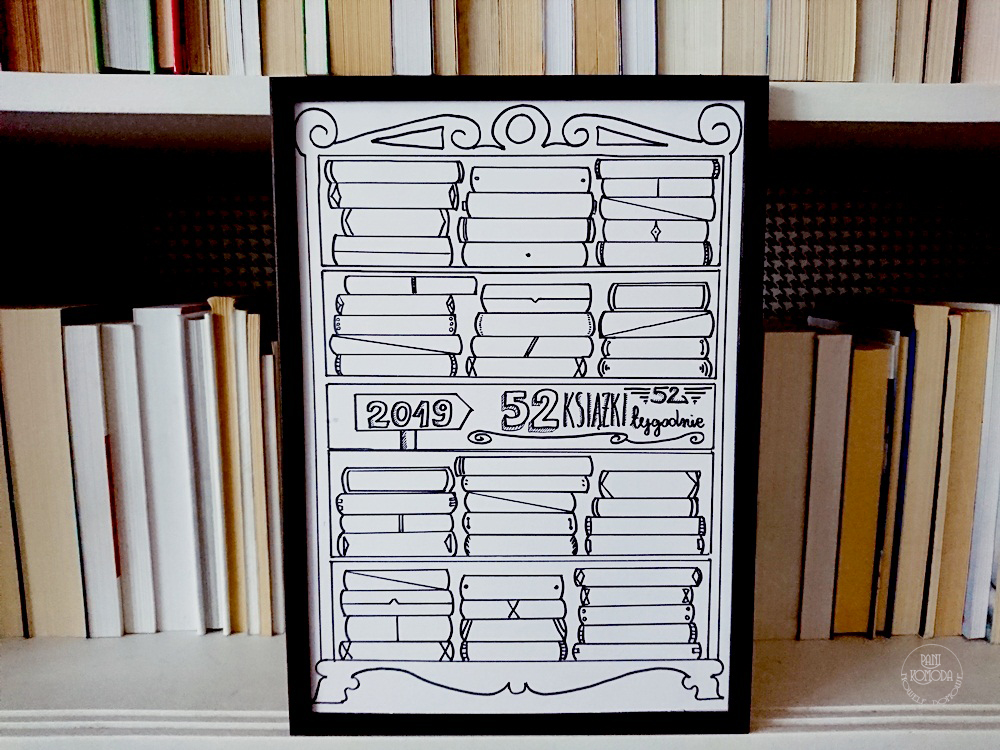 2019
52 KSIĄŻKI
52
tygodnie
PANI
KOMODA